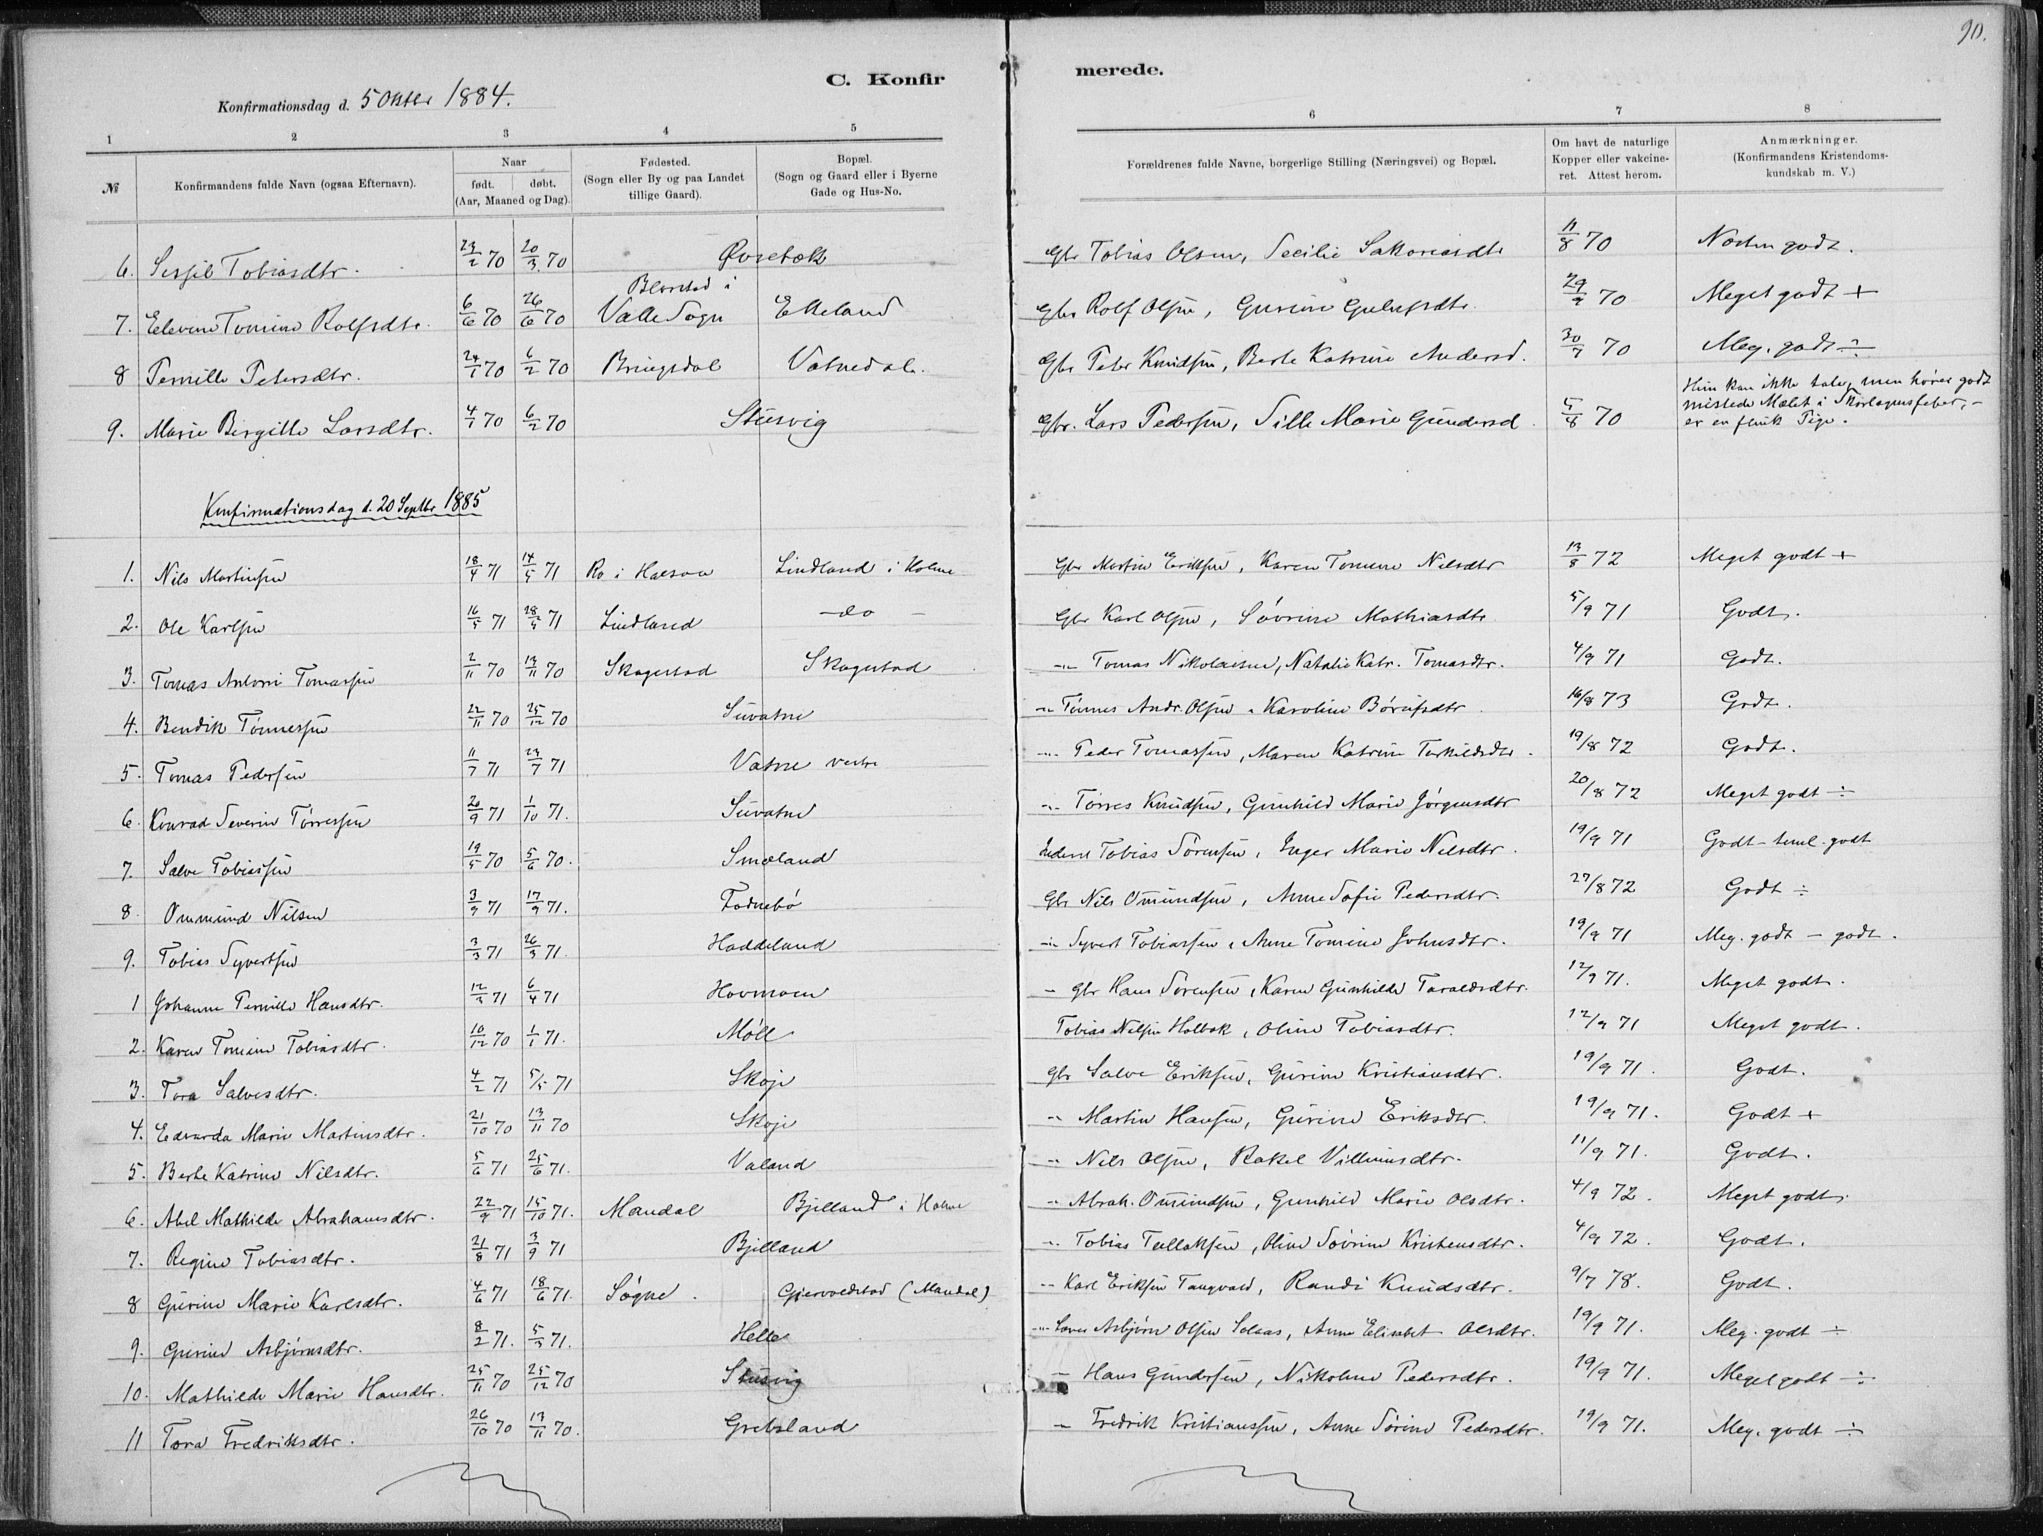 90.
C. Konfirmerede.
Konfirmationsdag d. 5 Oktbr 1884.
1 2 3 4 5 6 7 8
№ Konfirmandens fulde Navn (ogsaa Efternavn). Naar født. døbt. (Aar, Maaned og Dag). Fødested. (Sogn eller By og paa Landet tillige Gaard). Bopæl. (Sogn og Gaard eller i Byerne Gade og Hus-No. Forældrenes fulde Navne, borgerlige Stilling (Næringsvei) og Bopæl. Om havt de naturlige Kopper eller vakcineret. Attest herom. Anmærkninger. (Konfirmandens Kristendomskundskab m. V.)
6. Sersjil Tobiasdtr. 23/2 70 20/3 70 Øvrebæk Gbr Tobias Olsen, Secilie Sakariasdtr 11/8 70 Næsten godt.
7. Elevine Tomine Rolfsdtr. 6/6 70 26/6 70 Blørstad i Valle Sogn Eikeland Gbr Rolf Olsen, Gurine Gulufsdtr. 29/9 70 Meget godt +
8 Pernille Petersdtr. 24/1 70 6/2 70 Bringsdal Vatnedal. Gbr Peter Knudsen, Berte Katrine Andersd. 30/7 70 Meg. godt ÷
9. Marie Bergitte Larsdtr. 4/1 70 6/2 70 Stusvig Gbr. Lars Pedersen, Sille Marie Gundersd. 5/8 70 Hun kan ikke tale, men hører godt mistede Mælet i Skarlagensfeber, – er en flink Pige.
Konfirmationsdag d. 20 Septbr 1885
1. Nils Martinsen 18/4 71 14/5 71 Ro i Halsaa Lindland i Holme Gbr Martin Eriksen, Karen Tomine Nilsdtr 13/8 72 Meget godt +
2. Ole Karlsen 16/5 71 28/5 71 Lindland – do – Gbr Karl Olsen, Søvrine Mathiasdtr 5/9 71 Godt.
3. Tomas Antoni Tomassen 2/11 70 13/11 70 Skagestad Skagestad –"– Tomas Nikolaisen, Natalie Katr. Tomasdtr. 4/9 71 Godt.
4. Bendik Tønnessen 22/11 70 25/12 70 Suvatne –"– Tønnes Andr. Olsen, Karoline Børufsdtr 16/8 73 Godt.
5. Tomas Pedersen 11/7 71 23/7 71 Vatne vestre –"– Peder Tomassen, Maren Katrine Terkildsdtr 19/8 72 Godt.
6. Konrad Severin Tørressen 20/9 71 1/10 71. Suvatne –"– Tørres Knudsen, Gunhild Marie Jørgensdtr 20/8 72 Meget godt ÷
7. Salve Tobiassen 19/5 70 5/6 70. Smaland Inderst Tobias Sørensen, Inger Marie Nilsdtr. 19/9 71 Godt – teml. godt
8. Ommund Nilsen 3/9 71 17/9 71. Fodnebø Gbr Nils Omundsen, Anne Sofie Pedersdtr. 27/8 72 Godt ÷
9. Tobias Syvertsen 3/3 71 26/3 71. Haddeland –"– Syvert Tobiassen, Anne Tomine Johnsdtr. 19/9 71 Meg. godt – godt.
1 Johanne Pernille Hansdtr. 12/3 71 6/4 71 Hovmoen – gbr Hans Sørensen, Karen Gunhilde Taraldsdtr. 12/9 71. Meget godt.
2. Karen Tomine Tobiasdtr. 10/12 70 1/1 71. Møll Tobias Nilsen Holbæk, Oline Tobiasdtr. 12/9 71 Meget godt.
3. Tora Salvesdtr. 4/2 71 5/5 71 Skøje Gbr Salve Eriksen, Gurine Kristiansdtr. 19/9 71. Godt.
4. Edvarda Marie Martinsdtr. 21/10 70 13/11 70 Skøje –"– Martin Hansen, Gurine Eriksdtr. 19/9 71. Godt +
5. Berte Katrine Nilsdtr. 5/6 71 25/6 71. Valand –"– Nils Olsen, Rakel Villumsdtr. 11/9 71. Godt.
6. Abel Mathilde Abrahamsdtr. 22/9 71 15/10 71. Mandal Bjelland i Holme –"– Abrah. Omundsen, Gunhild Marie Olsdtr. 4/9 72. Meget godt.
7. Regine Tobiasdtr. 21/8 71 3/9 71 Bjelland –"– Tobias Tellaksen, Oline Søvrine Kristensdtr. 4/9 72. Godt.
8 Gurine Marie Karlsdtr. 4/6 71 18/6 71. Søgne. Gjervoldstad (Mandal) –"– Karl Eriksen Tangvald, Randi Knudsdtr. 9/7 78. Godt.
9. Gurine Asbjørnsdtr. 8/2 71. 5/3 71. Helle –"– Asbjørn Olsen Solaas, Anne Elisabet Olsdtr. 19/9 71. Meg. godt ÷
10. Mathilde Marie Hansdtr. 25/11 70 25/12 70 Stusvig –"– Hans Gundersen, Nikoline Pedersdtr. 19/9 71. Meget godt ÷
11 Tora Fredriksdtr. 26/10 70 13/11 70. Grebsland –"– Fredrik Kristianssen, Anne Sørine Pedersdtr. 19/9 71. Meg. godt ÷